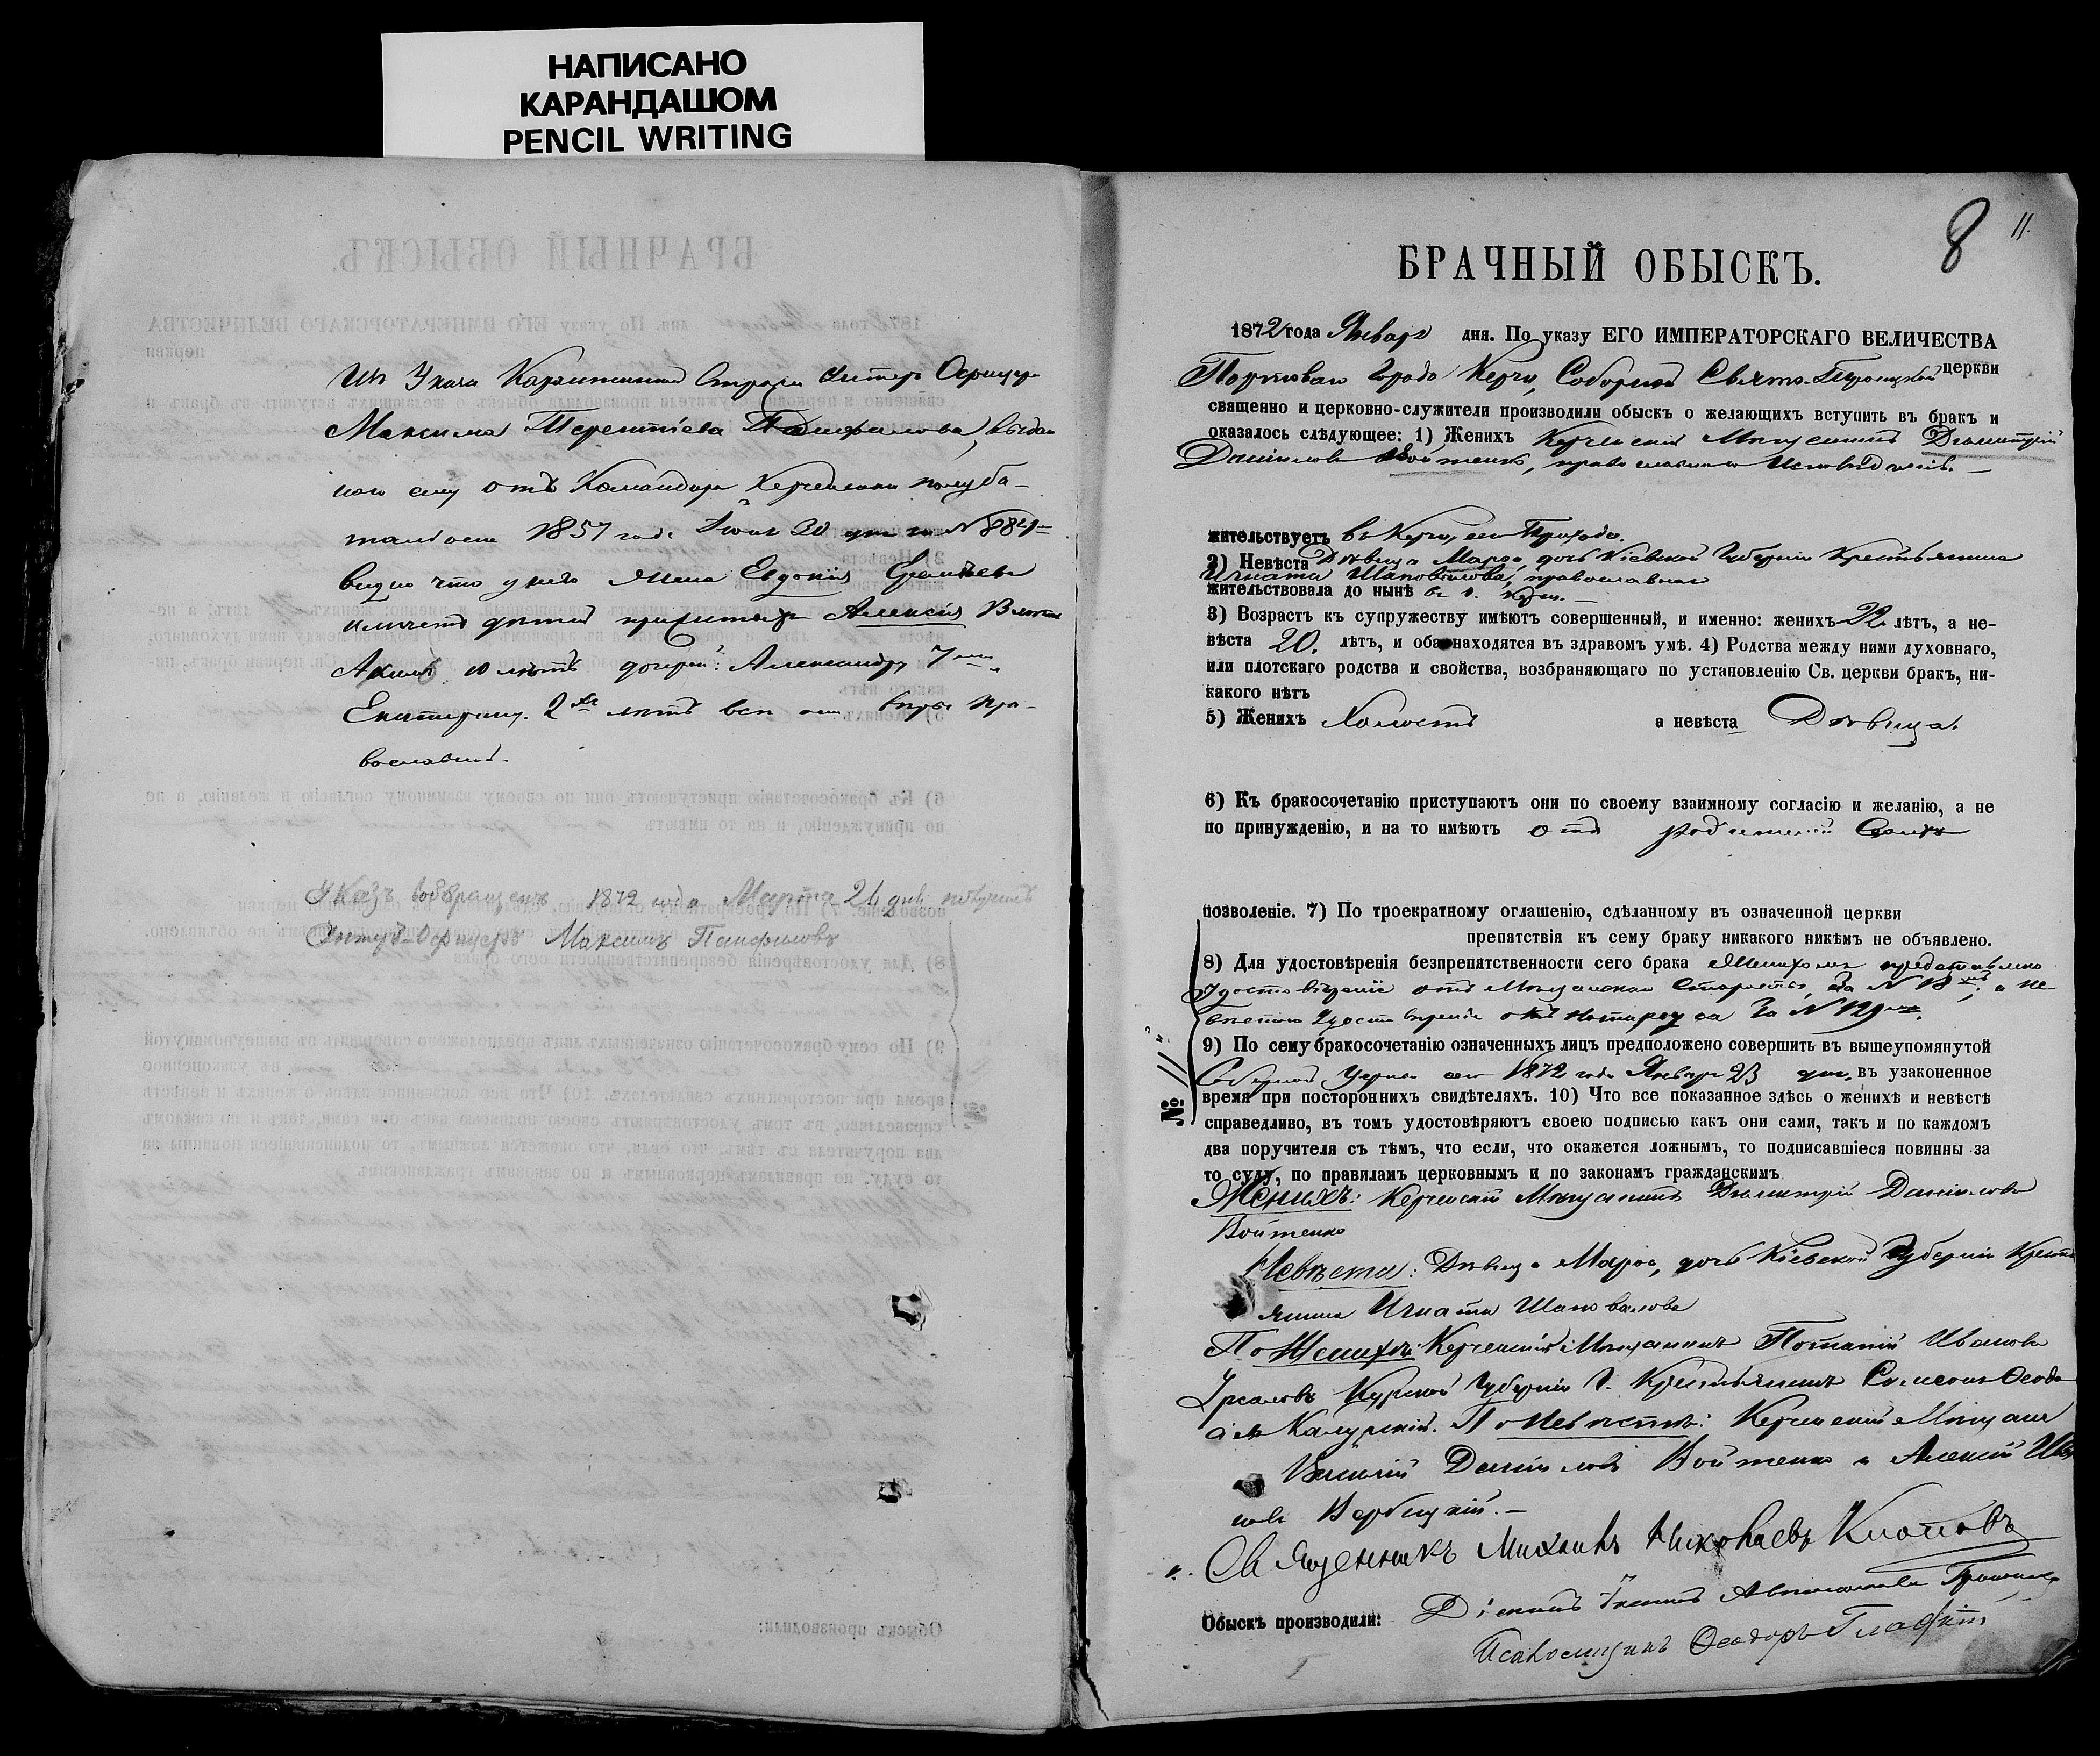 НАПИСАНО
КАРАНДАШОМ
PENCIL WRITING
Изъ Указа Карантинной Стражи Унтеръ Офицера
Максима Терентіева Панфилова, выдан
наго ему отъ Командира Керченскаго полуба-
таліона 1857 года Іюля 30 дня за №
видно что у него жена Евдокія
дѣтей прижитыхъ Алексѣя
10 лѣтъ дочерей: Александру 7
Екатерину 2хъ лѣтъ всѣ они вѣры пра-
вославной.
Указъ возвращенъ 1872 года Марта 24 дня получилъ
Унтеръ-Офицеръ Максимъ Панфиловъ
8 11.
БРАЧНЫЙ ОБЫСКЪ.
1872 года Января дня. По указу ЕГО ИМПЕРАТОРСКАГО ВЕЛИЧЕСТВА
Портоваго Города Керчи, Соборной Свято-Троицкой церкви
священно и церковно-служители производили обыскъ о желающихъ вступить въ бракъ и
оказалось слѣдующее: 1) Женихъ Керченскій Мѣщанинъ Димитрій
Даніиловъ Войтенко, православнаго Исповѣданія.
жительствуетъ въ Керчи, сего Прихода.
2) Невѣста Дѣвица Марѳа, дочь Кіевской Губерніи Крестьянина
Игната Шаповалова, православная
жительствовала до нынѣ въ г. Керчи.
3) Возрастъ къ супружеству имѣютъ совершенный, и именно: женихъ 22 лѣтъ, а не-
вѣста 20. лѣтъ, и оба находятся въ здравомъ умѣ. 4) Родства между ними духовнаго,
или плотскаго родства и свойства, возбраняющаго по установленію Св. церкви бракъ, ни-
какого нѣтъ
5) Женихъ Холостъ а невѣста Дѣвица.
6) Къ бракосочетанію приступаютъ они по своему взаимному согласію и желанію, а не
по принужденію, и на то имѣютъ отъ родителей своихъ
позволеніе. 7) По троекратному оглашенію, сдѣланному въ означенной церкви
препятствія къ сему браку никакого никѣмъ не объявлено.
8) Для удостовѣренія безпрепятственности сего брака Женихомъ представлено
Удостовѣреніе отъ Мѣщанскаго Старосты, за № 18; а не
вѣстою Удостовѣреніе отъ Нотаріуса за № 129.
№ 11
9) По сему бракосочетанію означенныхъ лицъ предположено совершить въ вышеупомянутой
Соборной Церкви сего 1872 года Января 23 дня, въ узаконенное
время при постороннихъ свидѣтеляхъ. 10) Что все показанное здѣсь о женихѣ и невѣстѣ
справедливо, въ томъ удостовѣряютъ своею подписью какъ они сами, такъ и по каждомъ
два поручителя съ тѣмъ, что если, что окажется ложнымъ, то подписавшіеся повинны за
то суду, по правиламъ церковнымъ и по законамъ гражданскимъ
Женихъ: Керченскій Мѣщанинъ Димитрій Даніиловъ
Войтенко
Невѣста: Дѣвица Марѳа, дочь Кіевской Губерніи Кресть
янина Игната Шаповалова
По Женихѣ: Керченскій Мѣщанинъ Потапій Ивановъ
Курской Губерніи Г. Крестьянинъ Симеонъ Ѳеодо
По Невѣстѣ: Керченскій Мѣщанин
Василій Даніиловъ Войтенко и Алексій Ива
новъ Вербицкій.
Священникъ Михаилъ Николаевъ Клоповъ
Обыскъ производили: Діаконъ
Псаломщикъ Ѳеодоръ